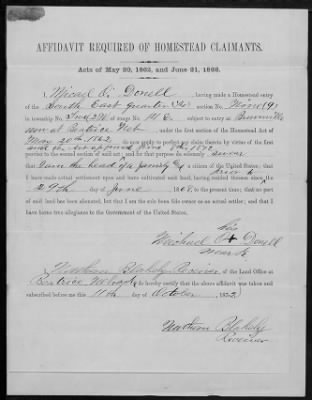 AFFIDAVIT REQUIRED OF HOMESTEAD CLAIMANTS.
Acts of May 20, 1862, and June 21, 1866.
I, Micael O. Donell, having made a Homestead entry
of the South East quarter section No. Nine (9)
in township No. Two 2 N. of range No. 14 E. subject to entry at
now at Beatrice Neb, under the first section of the Homestead Act of
May 20th 1862, do now apply to perfect my claim thereto by virtue of the first
proviso to the second section of said act; and for that purpose do solemnly swear
that I am the head of a family & a citizen of the United States; that
I have made actual settlement upon and have cultivated said land, having resided thereon since
29th day of June 1868, to the present time; that no part
of said land has been alienated, but that I am the sole bona fide owner as an actual settler; and that I
have borne true allegiance to the Government of the United States.
his
Meichael O X Donell
mark
I, Nathan Blakely Receiver of the Land Office at
Beatrice, do hereby certify that the above affidavit was taken and
subscribed before me this 11th day of October 187
Nathan Blakely
Receiver